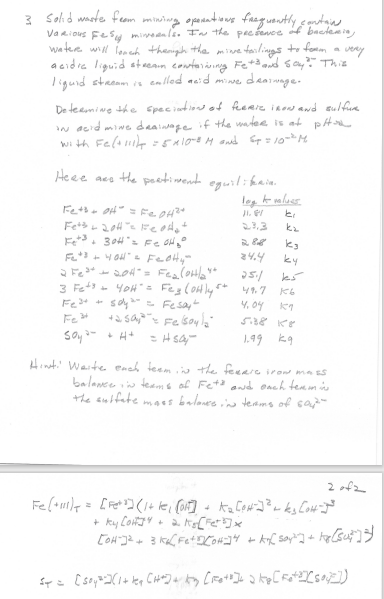 3 Solid waste from mining operations frequently contain
various FeSy minerals. In the presence of bacteria,
water will leach through the mine tailings to form a very
acidic liquid stream containing Fe+3 and SO4 2-. This
liquid stream is called acid mine drainage.
Determine the speciation of ferric iron and sulfur
in acid mine drainage if the water is at pH=2
with Fe(+III)T = 5x10-2 M and ST = 10-2 M
Here are the pertinent equilibria.
log K values
Fe+3 + OH- = FeOH2+ 11.81 K1
Fe+3 + 2OH- = Fe(OH)2+ 23.3 K2
Fe+3 + 3OH- = Fe(OH)3 0 28.8 K3
Fe+3 + 4OH- = Fe(OH)4- 34.4 K4
2Fe3+ + 2OH- = Fe2(OH)2 4+ 25.1 K5
3Fe+3 + 4OH- = Fe3(OH)4 5+ 49.7 K6
Fe3+ + SO4 2- = FeSO4+ 4.04 K7
Fe3+ + 2SO4 2- = Fe(SO4)2- 5.38 K8
SO4 2- + H+ = HSO4- 1.99 K9
Hint: Write each term in the ferric iron mass
balance in terms of Fe+3 and each term in
the sulfate mass balance in terms of SO4 2-
2 of 2
Fe(+III)T = [Fe+3](1 + K1[OH-] + K2[OH-]2 + K3[OH-]3
+ K4[OH-]4 + 2K5[Fe+3] x
[OH-]2 + 3K6[Fe+3]2[OH-]4 + K7[SO4 2-] + K8[SO4 2-]2)
ST = [SO4 2-](1 + K9[H+] + K7[Fe+3] + 2K8[Fe+3][SO4 2-])